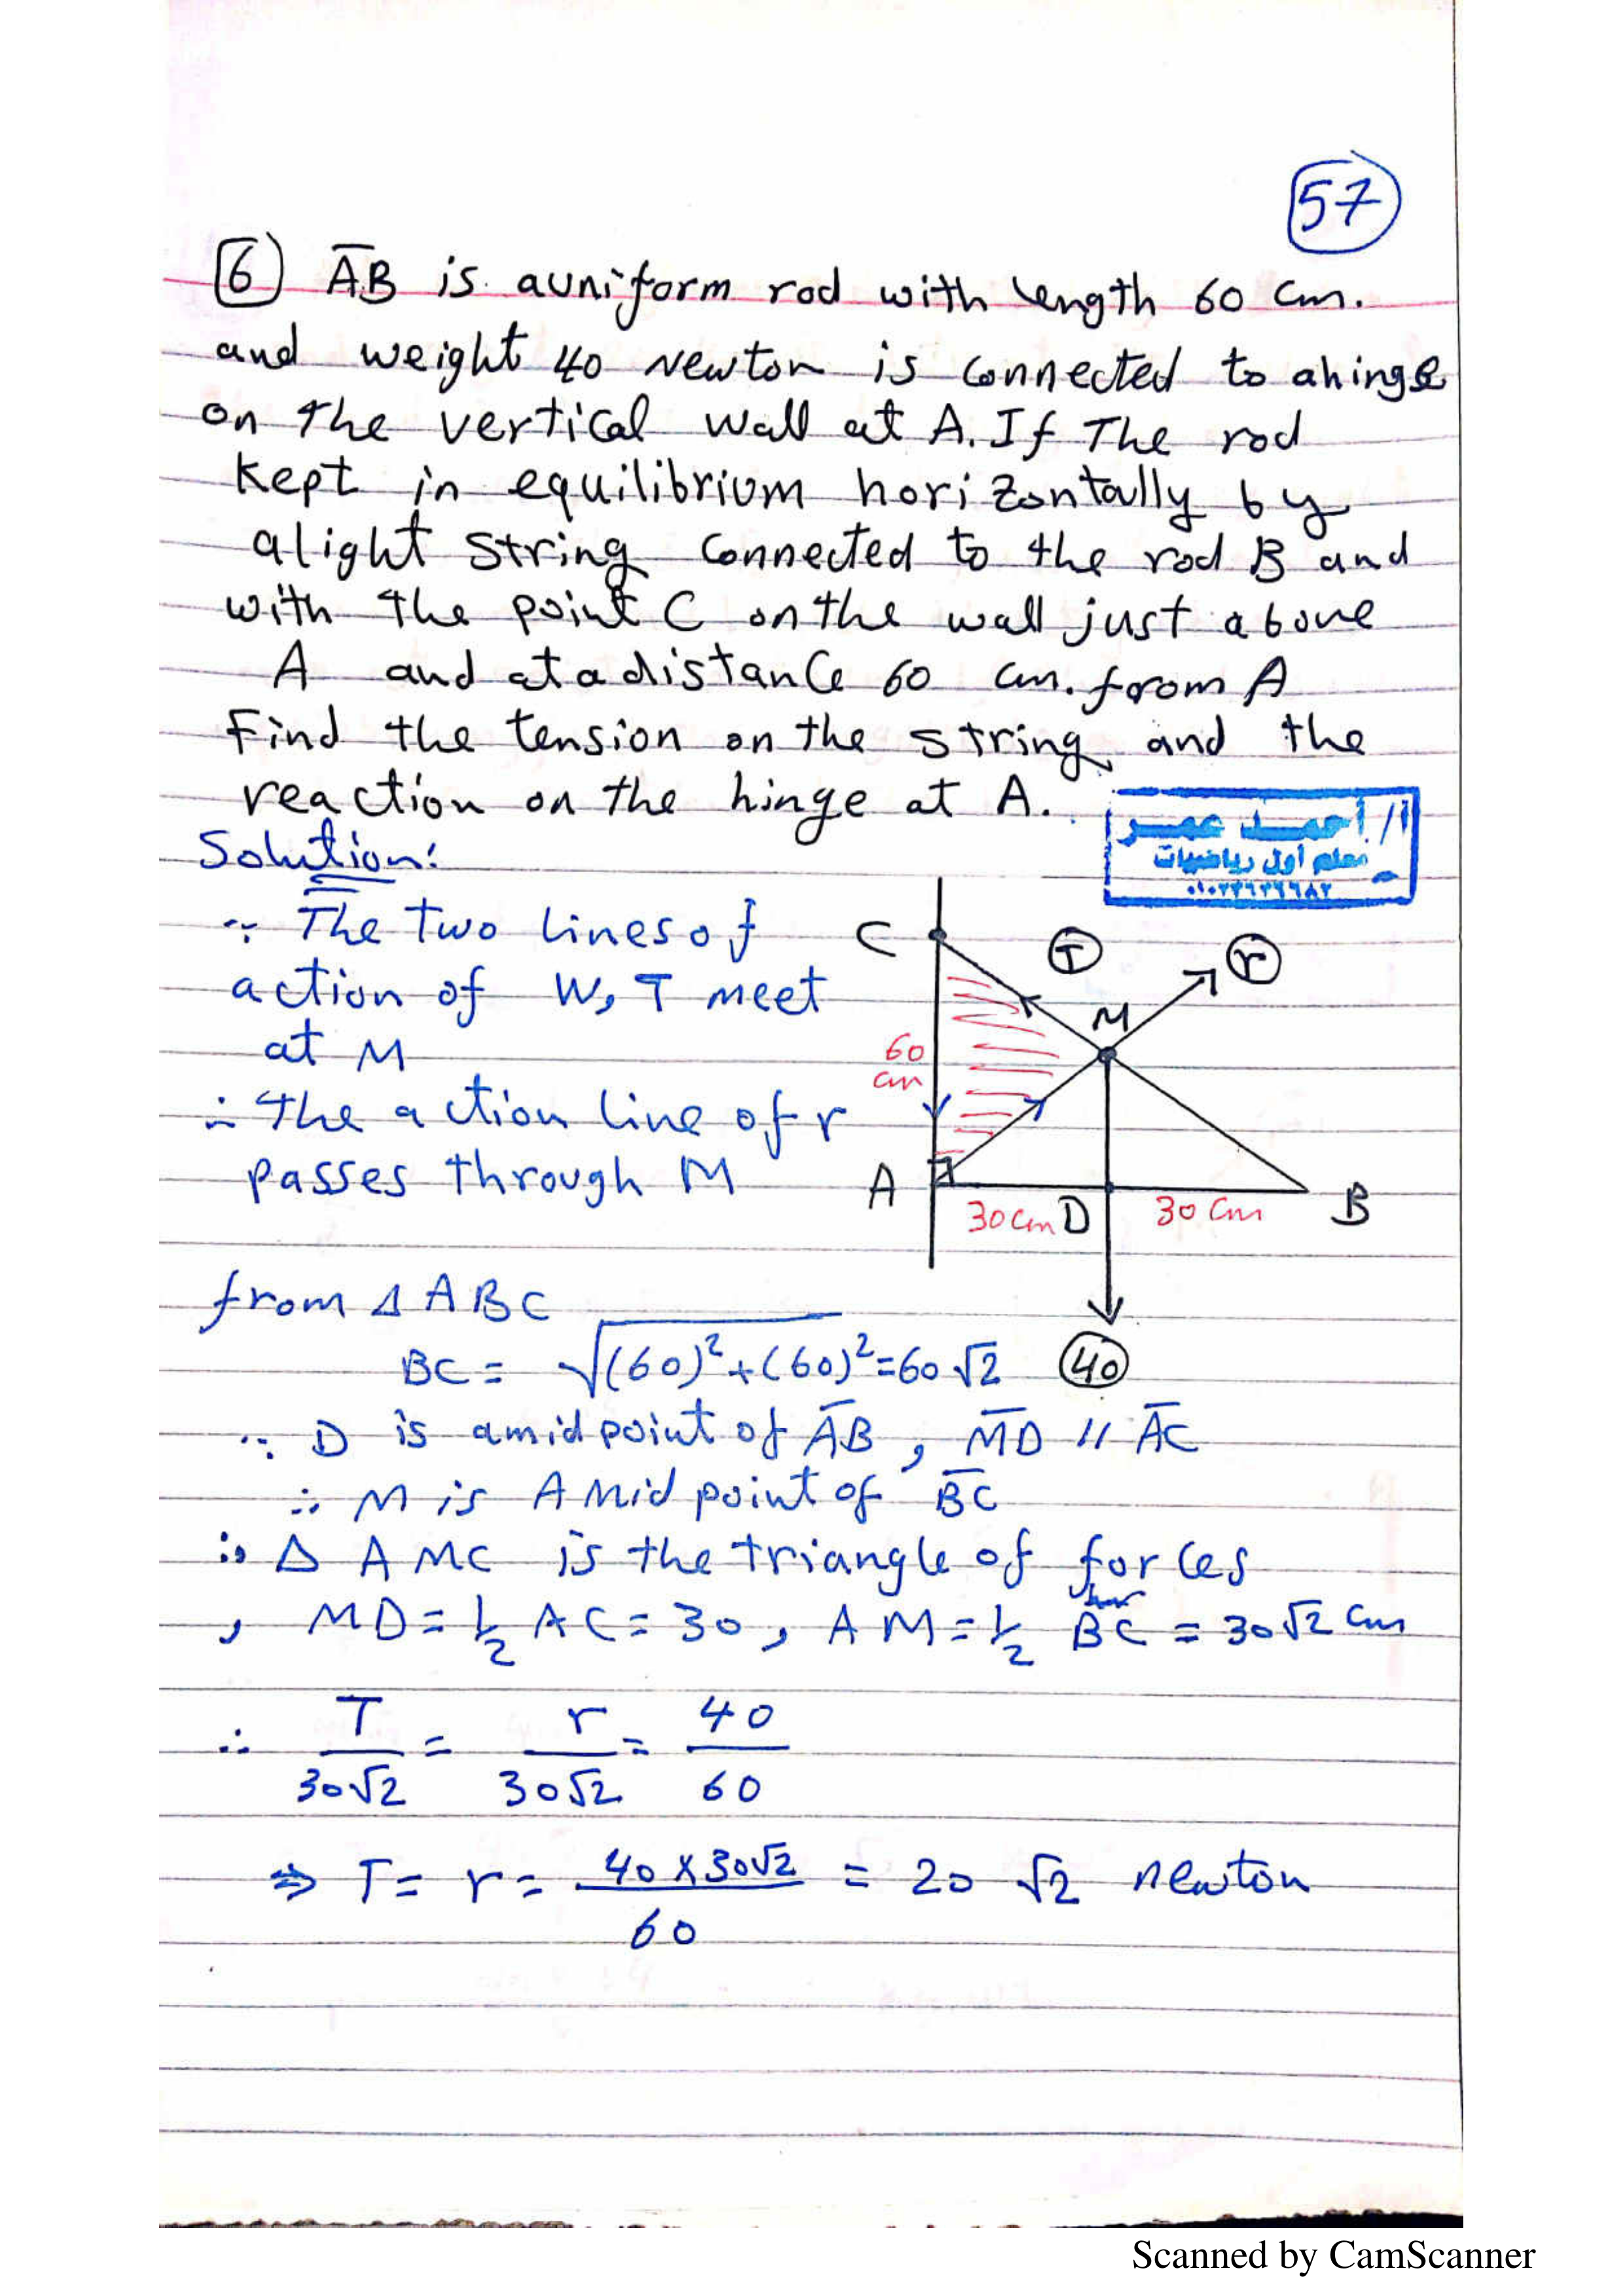 57
6 AB is auniform rod with length 60 cm.
and weight 40 Newton is connected to ahinge
on the vertical wall at A. If The rod
kept in equilibrium horizontally by
alight string connected to the rod B and
with the point C on the wall just above
A and at a distance 60 cm. from A
Find the tension on the string and the
reaction on the hinge at A.
أ/ أحمد عمر
معلم أول رياضيات
Solution:
∵ The two lines of
action of W, T meet
at M
∴ the action line of r
passes through M
C T r
M
60
cm
A 30cm D 30 cm B
40
from Δ ABC
BC = √(60)²+(60)² = 60√2
∵ D is amidpoint of AB, MD // AC
∴ M is A Mid point of BC
∴ Δ AMC is the triangle of forces
, MD = 1/2 AC = 30, AM = 1/2 BC = 30√2 cm
∴ T/30√2 = r/30√2 = 40/60
⇒ T = r = 40×30√2/60 = 20√2 newton
Scanned by CamScanner